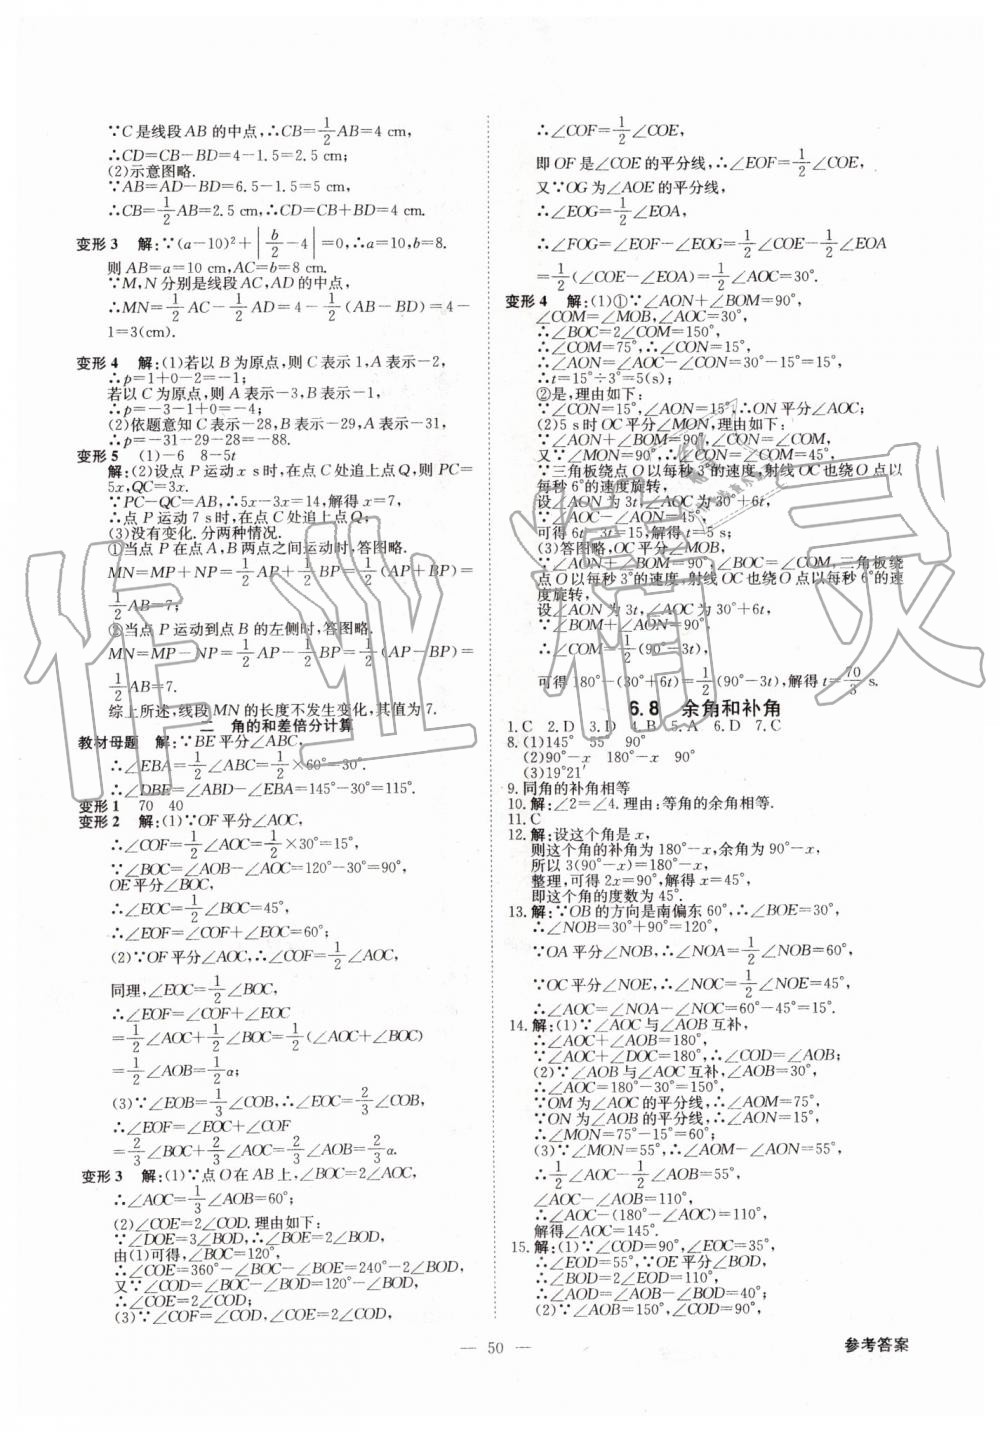 ∵C是线段AB的中点,∴CB=1/2AB=4 cm,
∴CD=CB-BD=4-1.5=2.5 cm;
(2)示意图略.
∵AB=AD-BD=6.5-1.5=5 cm,
∴CB=1/2AB=2.5 cm,∴CD=CB+BD=4 cm.
变形3 解:∵(a-10)²+|b/2-4|=0,∴a=10,b=8.
则AB=a=10 cm,AC=b=8 cm.
∵M,N分别是线段AC,AD的中点,
∴MN=1/2AC-1/2AD=4-1/2(AB-BD)=4-
1=3(cm).
变形4 解:(1)若以B为原点,则C表示1,A表示-2,
∴p=1+0-2=-1;
若以C为原点,则A表示-3,B表示-1,
∴p=-3-1+0=-4;
(2)依题意知C表示-28,B表示-29,A表示-31,
∴p=-31-29-28=-88.
变形5 (1)-6 8-5t
解:(2)设点P运动x s时,在点C处追上点Q,则PC=
5x,QC=3x.
∵PC-QC=AB,∴5x-3x=14,解得x=7,
∴点P运动7 s时,在点C处追上点Q;
(3)没有变化.分两种情况.
①当点P在点A,B两点之间运动时,答图略.
MN=MP+NP=1/2AP+1/2BP=1/2(AP+BP)=
1/2AB=7;
②当点P运动到点B的左侧时,答图略.
MN=MP-NP=1/2AP-1/2BP=1/2(AP-BP)=
1/2AB=7.
综上所述,线段MN的长度不发生变化,其值为7.
二 角的和差倍分计算
教材母题 解:∵BE平分∠ABC,
∴∠EBA=1/2∠ABC=1/2×60°=30°.
∴∠DBE=∠DBA-∠EBA=145°-30°=115°.
变形1 70 40
变形2 解:(1)∵OF平分∠AOC,
∴∠COF=1/2∠AOC=1/2×30°=15°,
∵∠BOC=∠AOB-∠AOC=120°-30°=90°,
OE平分∠BOC,
∴∠EOC=1/2∠BOC=45°,
∴∠EOF=∠COF+∠EOC=60°;
(2)∵OF平分∠AOC,∴∠COF=1/2∠AOC,
同理,∠EOC=1/2∠BOC,
∴∠EOF=∠COF+∠EOC
=1/2∠AOC+1/2∠BOC=1/2(∠AOC+∠BOC)
=1/2∠AOB=1/2α;
(3)∵∠EOB=1/3∠COB,∴∠EOC=2/3∠COB,
∴∠EOF=∠EOC+∠COF
=2/3∠BOC+2/3∠AOC=2/3∠AOB=2/3α.
变形3 解:(1)∵点O在AB上,∠BOC=2∠AOC,
∴∠AOC=1/3∠AOB=60°;
(2)∠COE=2∠COD.理由如下:
∵∠DOE=3∠BOD,∴∠BOE=2∠BOD,
由(1)可得,∠BOC=120°,
∴∠COE=360°-∠BOC-∠BOE=240°-2∠BOD,
又∵∠COD=∠BOC-∠BOD=120°-∠BOD,
∴∠COE=2∠COD;
(3)∵∠COF=∠COD,∠COE=2∠COD,
∴∠COF=1/2∠COE,
即OF是∠COE的平分线,∴∠EOF=1/2∠COE,
又∵OG为∠AOE的平分线,
∴∠EOG=1/2∠EOA,
∴∠FOG=∠EOF-∠EOG=1/2∠COE-1/2∠EOA
=1/2(∠COE-∠EOA)=1/2∠AOC=30°.
变形4 解:(1)①∵∠AON+∠BOM=90°,
∠COM=∠MOB,∠AOC=30°,
∴∠BOC=2∠COM=150°,
∴∠COM=75°,∴∠CON=15°,
∴∠AON=∠AOC-∠CON=30°-15°=15°,
∴t=15°÷3°=5(s);
②是,理由如下:
∵∠CON=15°,∠AON=15°,∴ON平分∠AOC;
(2)5 s时OC平分∠MON,理由如下:
∵∠AON+∠BOM=90°,∠CON=∠COM,
又∵∠MON=90°,∴∠CON=∠COM=45°,
∵三角板绕点O以每秒3°的速度,射线OC也绕O点以
每秒6°的速度旋转,
设∠AON为3t,∠AOC为30°+6t,
∵∠AOC-∠AON=45°,
可得6t-3t=15,解得t=5 s;
(3)答图略,OC平分∠MOB,
∵∠AON+∠BOM=90°,∠BOC=∠COM,三角板绕
点O以每秒3°的速度,射线OC也绕O点以每秒6°的速
度旋转,
设∠AON为3t,∠AOC为30°+6t,
∵∠BOM+∠AON=90°,
∴∠COM=1/2(90°-3t),
可得180°-(30°+6t)=1/2(90°-3t),解得t=70/3 s.
6.8 余角和补角
1.C 2.D 3.D 4.B 5.A 6.D 7.C
8.(1)145° 55° 90°
(2)90°-x 180°-x 90°
(3)19°21′
9.同角的补角相等
10.解:∠2=∠4.理由:等角的余角相等.
11.C
12.解:设这个角是x,
则这个角的补角为180°-x,余角为90°-x,
所以3(90°-x)=180°-x,
整理,可得2x=90°,解得x=45°,
即这个角的度数为45°.
13.解:∵OB的方向是南偏东60°,∴∠BOE=30°,
∴∠NOB=30°+90°=120°,
∵OA平分∠NOB,∴∠NOA=1/2∠NOB=60°,
∵OC平分∠NOE,∴∠NOC=1/2∠NOE=45°,
∴∠AOC=∠NOA-∠NOC=60°-45°=15°.
14.解:(1)∵∠AOC与∠AOB互补,
∴∠AOC+∠AOB=180°,
∵∠AOC+∠DOC=180°,∴∠COD=∠AOB;
(2)∵∠AOB与∠AOC互补,∠AOB=30°,
∴∠AOC=180°-30°=150°,
∵OM为∠AOC的平分线,∴∠AOM=75°,
∵ON为∠AOB的平分线,∴∠AON=15°,
∴∠MON=75°-15°=60°;
(3)∵∠MON=55°,∴∠AOM-∠AON=55°,
∴1/2∠AOC-1/2∠AOB=55°,
∠AOC-∠AOB=110°,
∴∠AOC-(180°-∠AOC)=110°,
解得∠AOC=145°.
15.解:(1)∵∠COD=90°,∠EOC=35°,
∴∠EOD=55°,∵OE平分∠BOD,
∴∠BOD=2∠EOD=110°,
∴∠AOD=∠AOB-∠BOD=40°;
(2)∵∠AOB=150°,∠COD=90°,
— 50 —
参考答案
作业精灵